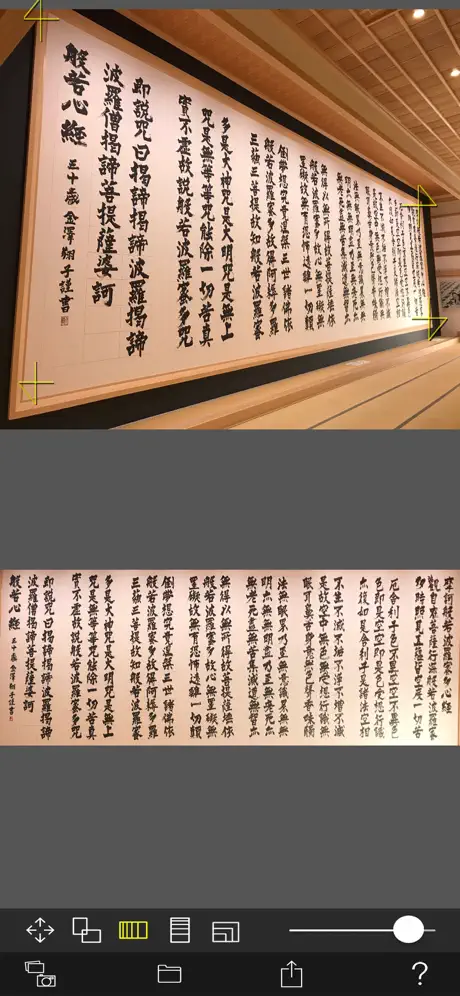 無得以無所得故菩提薩埵依
般若波羅蜜多故心無罣礙無
罣礙故無有恐怖遠離一切顛
倒夢想究竟涅槃三世諸佛依
般若波羅蜜多故得阿耨多羅
三藐三菩提故知般若波羅蜜
多是大神咒是大明咒是無上
咒是無等等咒能除一切苦真
實不虚故説般若波羅蜜多咒
即説咒曰揭諦揭諦波羅揭諦
波羅僧揭諦菩提薩婆訶
般若心經 三十歳 金澤翔子謹書
摩訶般若波羅蜜多心經
觀自在菩薩行深般若波羅蜜
多時照見五蘊皆空度一切苦
厄舎利子色不異空空不異色
色即是空空即是色受想行識
亦復如是舎利子是諸法空相
不生不滅不垢不淨不増不減
是故空中無色無受想行識無
眼耳鼻舌身意無色聲香味觸
法無眼界乃至無意識界無無
明亦無無明盡乃至無老死亦
無老死盡無苦集滅道無智亦
無得以無所得故菩提薩埵依
般若波羅蜜多故心無罣礙無
罣礙故無有恐怖遠離一切顛
倒夢想究竟涅槃三世諸佛依
般若波羅蜜多故得阿耨多羅
三藐三菩提故知般若波羅蜜
多是大神咒是大明咒是無上
咒是無等等咒能除一切苦真
實不虚故説般若波羅蜜多咒
即説咒曰揭諦揭諦波羅揭諦
波羅僧揭諦菩提薩婆訶
般若心經 三十歳 金澤翔子謹書
?